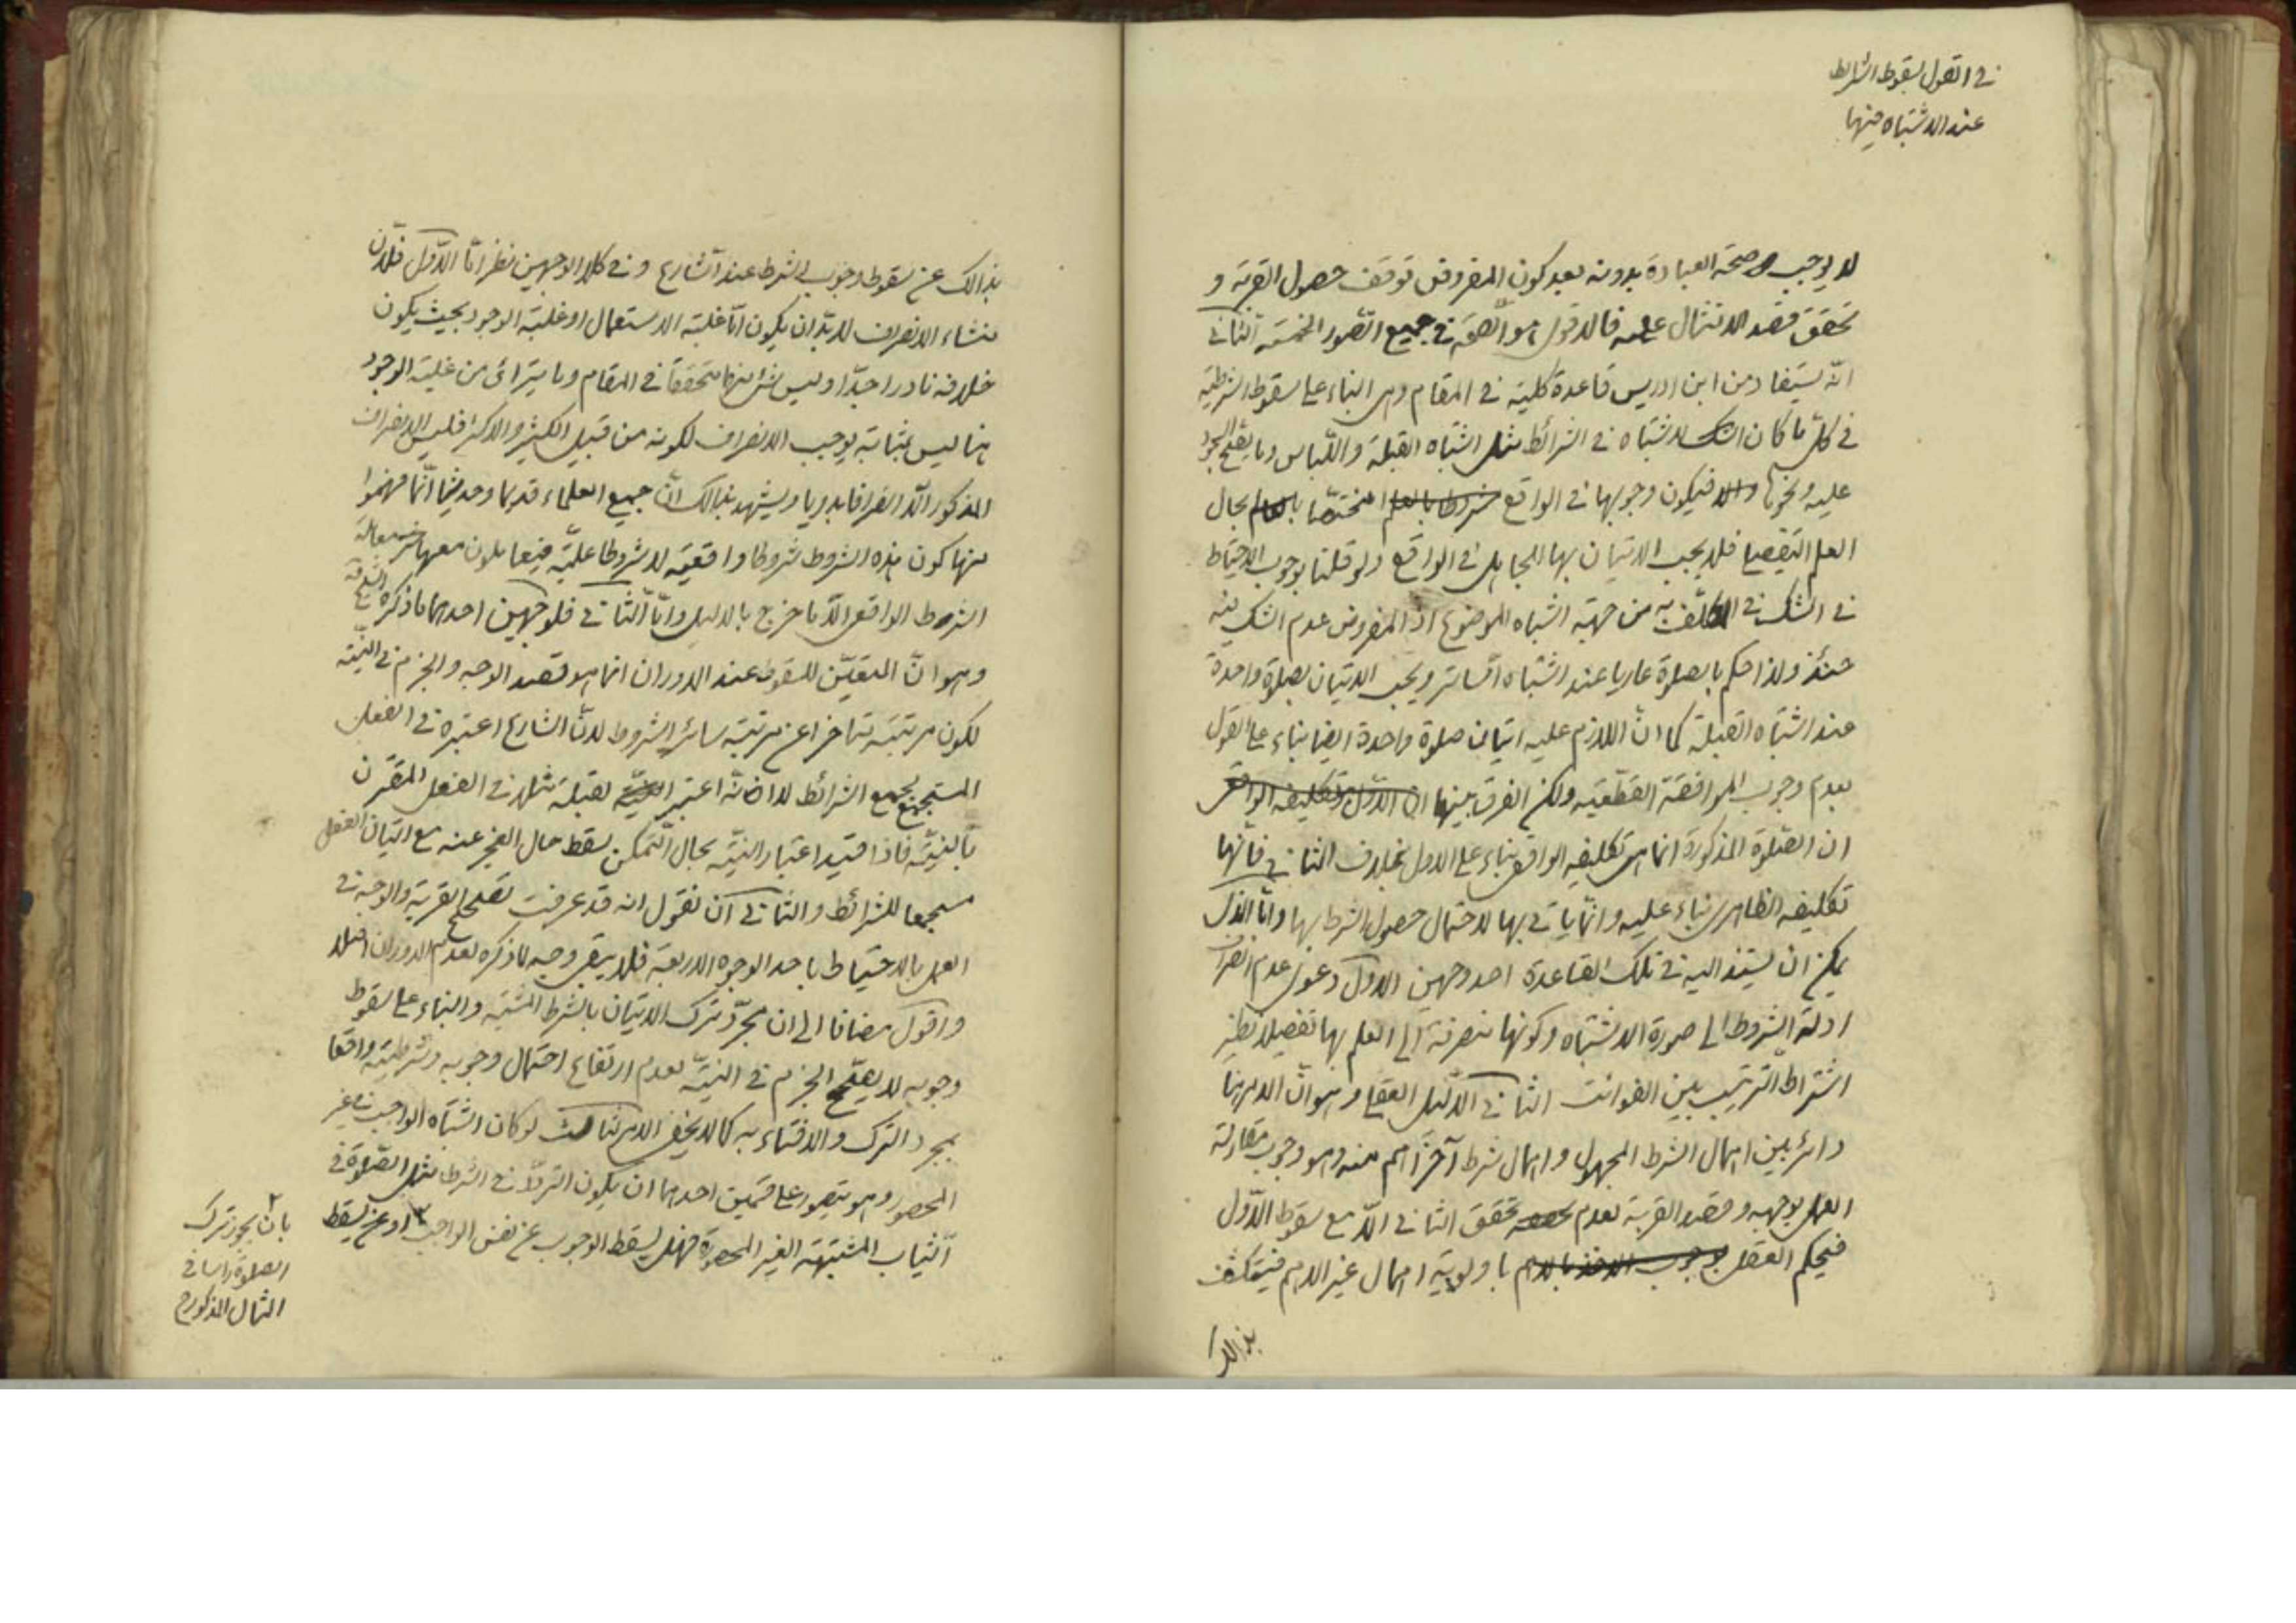 في القول بسقوط الشرائط
عند الاشتباه فيها
لا يوجب صحة العبادة بدونه بعد كون المفروض توقف حصول القربة و
تحقق قصد الامتثال عليه فالاقوى هو الصحة في جميع الصور الخمسة الثاني
انه يستفاد من ابن ادريس قاعدة كلية في المقام وهي البناء على سقوط الشرطية
في كل ما كان الاشتباه في الشرائط مثل اشتباه القبلة واللباس وما يصح السجود
عليه ونحوها فيكون وجوبها في الواقع مختصا بحال
العلم التفصيلي فلا يجب الاتيان بها للجاهل في الواقع ولو قلنا بوجوب الاحتياط
في الشك في المكلف به من جهة اشتباه الموضوع اذ المفروض عدم الشك فيه
حينئذ ولذا حكم بالصلوة عاريا عند اشتباه الساتر ويجب الاتيان بصلوة واحدة
عند اشتباه القبلة كما ان اللازم عليه اتيان صلوة واحدة ايضا بناء على القول
بعدم وجوب الموافقة القطعية ولكن الفرق بينهما ان الاول تكليفه الواقعي
ان الصلوة المذكورة انما هي تكليفه الواقعي بناء على الاول بخلاف الثاني فانها
تكليفه الظاهري بناء عليه وانما ياتي بها لاحتمال حصول الشرط بها واما الاول
يمكن ان يستند اليه في تلك القاعدة احد وجهين الاول دعوى عدم انصراف
ادلة الشروط الى صورة الاشتباه وكونها منصرفة الى العلم بها تفصيلا نظير
اشتراط الترتيب بين الفوائت الثاني الدليل العقلي وهو ان الامر هنا
دائر بين اهمال الشرط المجهول واهمال شرط آخر اهم منه وهو وجوب مقارنة
العمل بوجهه وقصد القربة لعدم تحقق الثاني الا مع سقوط الاول
فيحكم العقل بوجوب الاخذ بالاهم باولوية اهمال غير الاهم فيتكشف
بذالك
بذالك عن سقوط وجوب الشرط عند الشارع وفي كلا الوجهين نظر اما الاول فلان
منشاء الانصراف لا بد ان يكون اما غلبة الاستعمال او غلبة الوجود بحيث يكون
خلافه نادرا جدا وليس شئ منهما متحققا في المقام وما يترائى من غلبة الوجود
هنا ليس بمثابة يوجب الانصراف لكونه من قبيل الكثير والاكثر فليس الانصراف
المذكور الا انصرافا بدويا ويشهد بذالك ان جميع العلماء قديما وحديثا انما فهموا
منها كون هذه الشروط شروطا واقعية لا شروطا علمية فيعاملون معها معاملة
الشرط الواقعي الا ما خرج بالدليل واما الثاني فلوجهين احدهما ما ذكره
وهو ان المتعين للسقوط عند الدوران انما هو قصد الوجه والجزم في النية
لكون مرتبته متاخرا عن مرتبة سائر الشروط لان الشارع اعتبره في الفعل
المستجمع لجميع الشرائط لا انه اعتبر القبلة مثلا في الفعل المقرن
بالنية فاذا قيد اعتبار النية بحال التمكن سقط حال العجز عنه مع اتيان الفعل
مستجمعا للشرائط والثاني ان نقول انه قد عرفت القربة والوجه في
العمل بالاحتياط باحد الوجوه الاربعة فلا يبقى وجه لما ذكره لعدم الدوران اصلا
واقول مضافا الى ان مجرد ترك الاتيان بالشرط المشتبه والبناء على سقوط
وجوبه لا يصحح الجزم في النية لعدم ارتفاع احتمال وجوبه وشرطيته واقعا
بمجرد الترك والافتاء به كما لا يخفى الامر الثالث لو كان اشتباه الواجب في غير
المحصور وهو يتصور على قسمين احدهما ان يكون الترد في الشرط مثل الصلوة في
الثياب المشتبهة الغير المحصورة فهل يسقط الوجوب عن نفس الواجب او عن يسقط
بان يجوز ترك
الصلوة راسا في
المثال المذكور